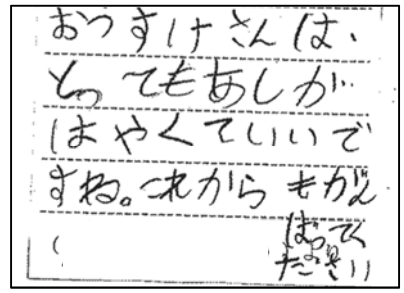 おうすけさんは、
とってもあしが
はやくていいで
すね。これからもがん
ばってく
ださい